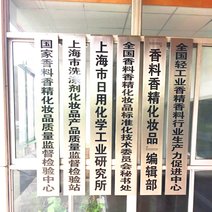 国家香料香精化妆品质量监督检验中心
上海市洗涤剂化妆品产品质量监督检验站
上海市日用化学工业研究所
全国香料香精化妆品标准化技术委员会秘书处
《香料香精化妆品》编辑部
全国轻工业香精香料行业生产力促进中心